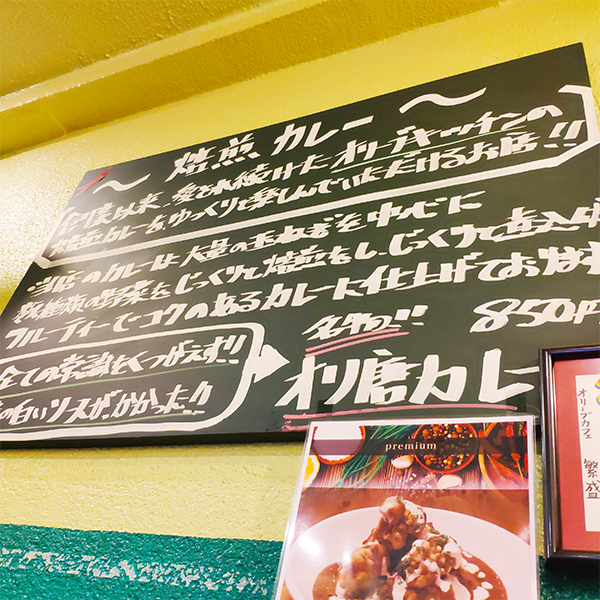 ～ 焙煎 カレー ～
愛され続けたオリーブキッチンの
焙煎カレーを、ゆっくりと楽しんでいただけるお店!!
当店のカレーは大量の玉ねぎを中心に
数種類の野菜をじっくりと焙煎をし、じっくりと煮込み
フルーティーでコクのあるカレーに仕上げており
全ての常識をくつがえす!!
の白いソスがかかった!!
名物の!!
850円
オリ唐カレー
premium
オリーブカフェ
繁盛